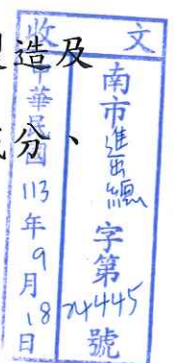 造及
分、
收文
中華民國113年9月18日
南市進出總字第74445號